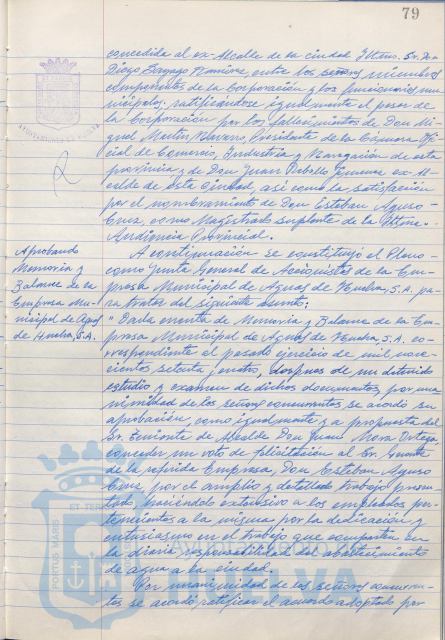 79
concedida al ex-Alcalde de la ciudad Iltmo. Sr. Don
Diego Sayago Ramírez, entre los señores miembros
componentes de la Corporación y los funcionarios mu-
nicipales. ratificándose igualmente el pesar de
la Corporación por los fallecimientos de Don Mi-
guel Martín Navarro, Presidente de la Cámara Ofi-
cial de Comercio, Industria y Navegación de esta
provincia y de Don Juan Rebollo Jimenez ex-Al-
calde de esta Ciudad, así como la satisfacción
por el nombramiento de Don Esteban
Cruz, como Magistrado suplente de la Iltma.
Audiencia Provincial.
A continuación se constituyó el Pleno
como Junta General de Accionistas de la Em-
presa Municipal de Aguas de Huelva, S.A. pa-
ra tratar del siguiente asunto:
"Dada cuenta de Memoria y Balance de la Em-
presa Municipal de Aguas de Huelva, S.A. co-
rrespondiente al pasado ejercicio de mil nove-
cientos setenta y cuatro, después de un detenido
estudio y examen de dichos documentos, por una-
nimidad de los señores concurrentes se acordó su
aprobación, como igualmente y a propuesta del
Sr. Teniente de Alcalde Don Juan Mora Ortega,
conceder un voto de felicitación al Sr. Gerente
de la referida Empresa, Don Esteban
Cruz, por el amplio y detallado trabajo presen-
tado, haciéndolo extensivo a los empleados per-
tenecientos a la misma por la dedicación y
entusiasmo en el trabajo que comparten en
la diaria responsabilidad del abastecimiento
de agua a la ciudad.
Por unanimidad de los señores concurren-
tes se acordó ratificar el acuerdo adoptado por
Aprobando
Memoria y
Balance de la
Empresa Mu-
nicipal de Aguas
de Huelva, S.A.
AYUNTAMIENTO DE HUELVA
PORTUS MARIS
ET TERRAE
HUELVA